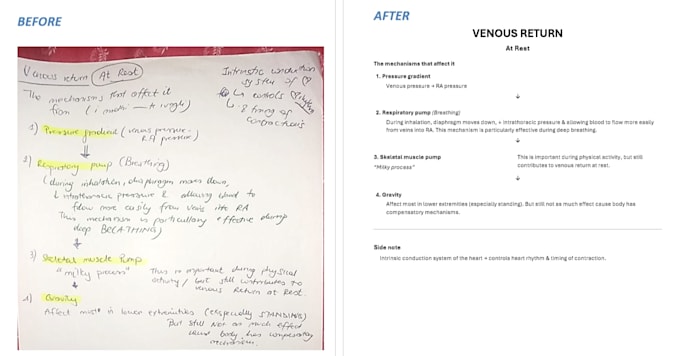 BEFORE
Venous return (At Rest)
The mechanisms that affect it
from (
1) Pressure gradient (venous pressure -
RA pressure)
2) Respiratory pump (Breathing)
(during inhalation, diaphragm moves down,
↓ intrathoracic pressure & allowing blood to
flow more easily from veins into RA
This mechanism is particularly effective during
deep BREATHING)
3) Skeletal muscle Pump
"milky process"
This is important during physical
activity / but still contributes to
venous Return at Rest.
4) Gravity
Affect most in lower extremities (especially STANDING)
But still Not as much effect
cause body has compensatory
mechanisms.
Intrinsic conduction
system of
↳ controls
↳ & timing of
contractions
AFTER
VENOUS RETURN
At Rest
The mechanisms that affect it
1. Pressure gradient
Venous pressure + RA pressure
2. Respiratory pump (Breathing)
During inhalation, diaphragm moves down, + intrathoracic pressure & allowing blood to flow more easily
from veins into RA. This mechanism is particularly effective during deep breathing.
3. Skeletal muscle pump
"Milky process"
This is important during physical activity, but still
contributes to venous return at rest.
4. Gravity
Affect most in lower extremities (especially standing). But still not as much affect cause body has
compensatory mechanisms.
Side note
Intrinsic conduction system of the heart + controls heart rhythm & timing of contraction.